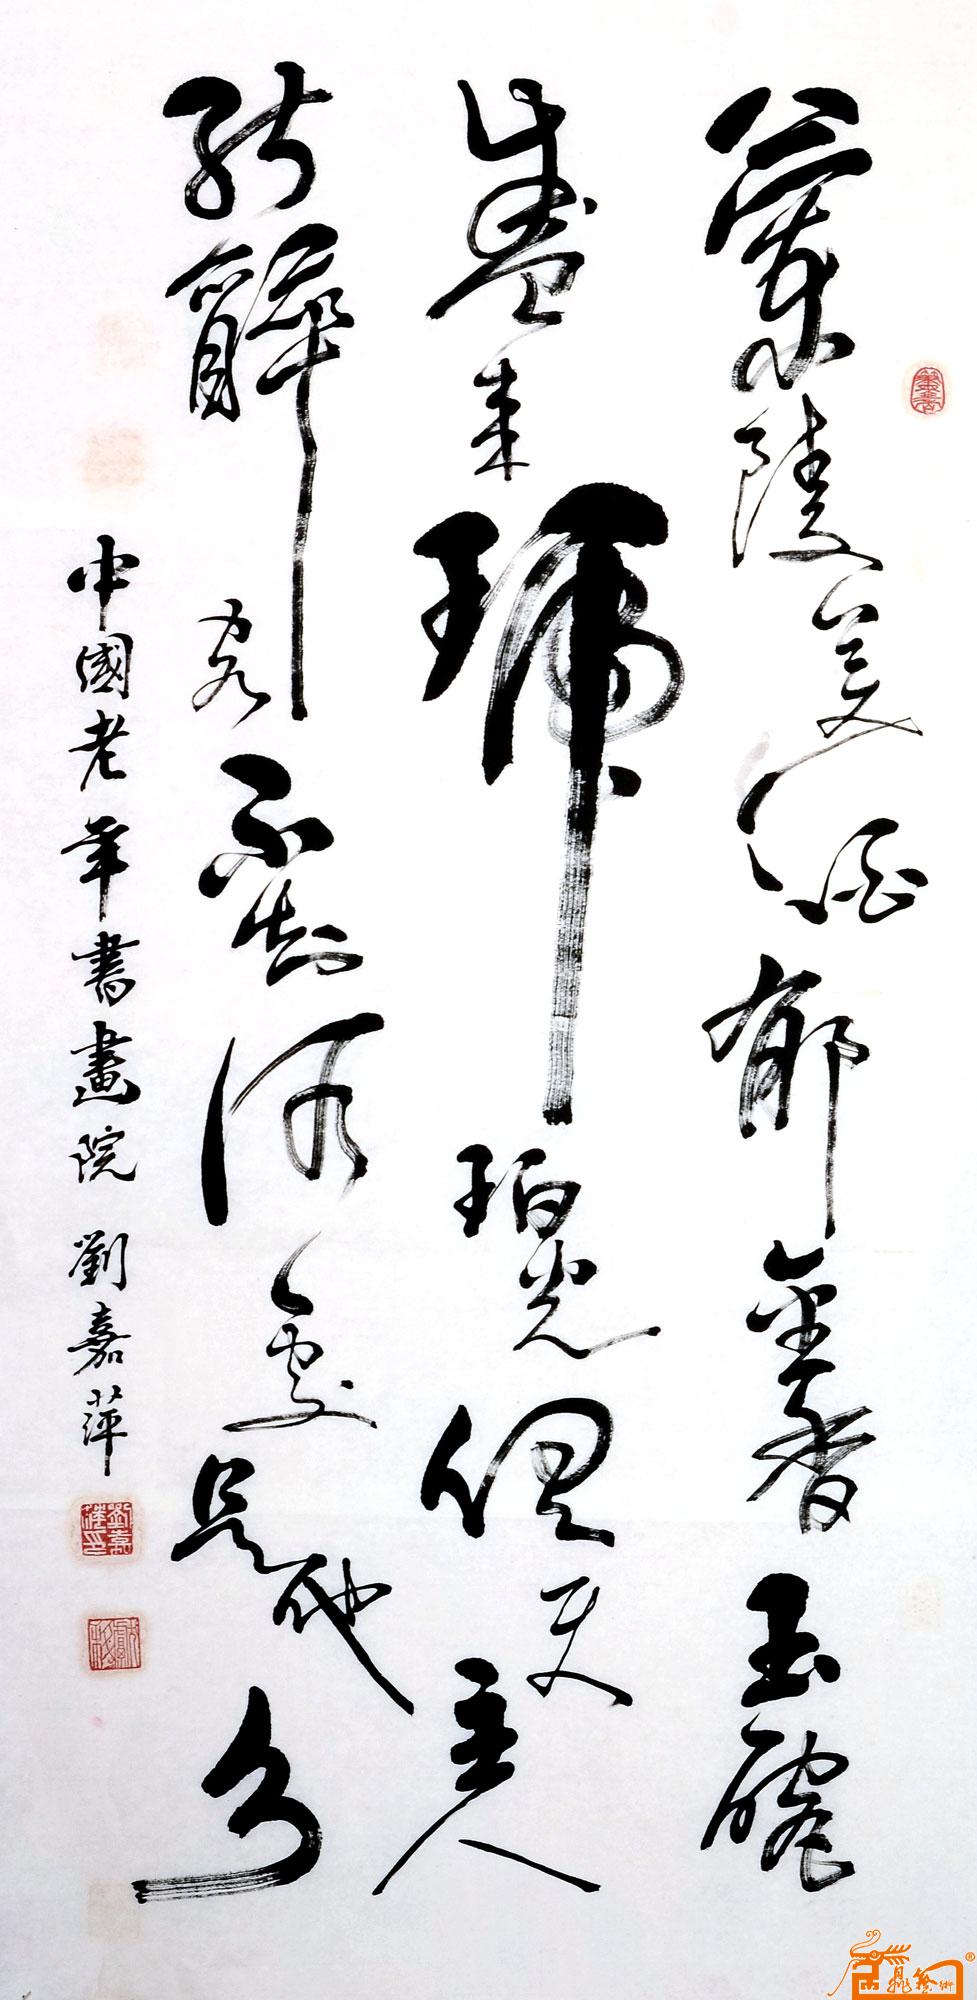 蘭陵美酒郁金香玉碗
盛来琥珀光但使主人
能醉客不知何處是他乡
中國老年書畫院 劉嘉萍